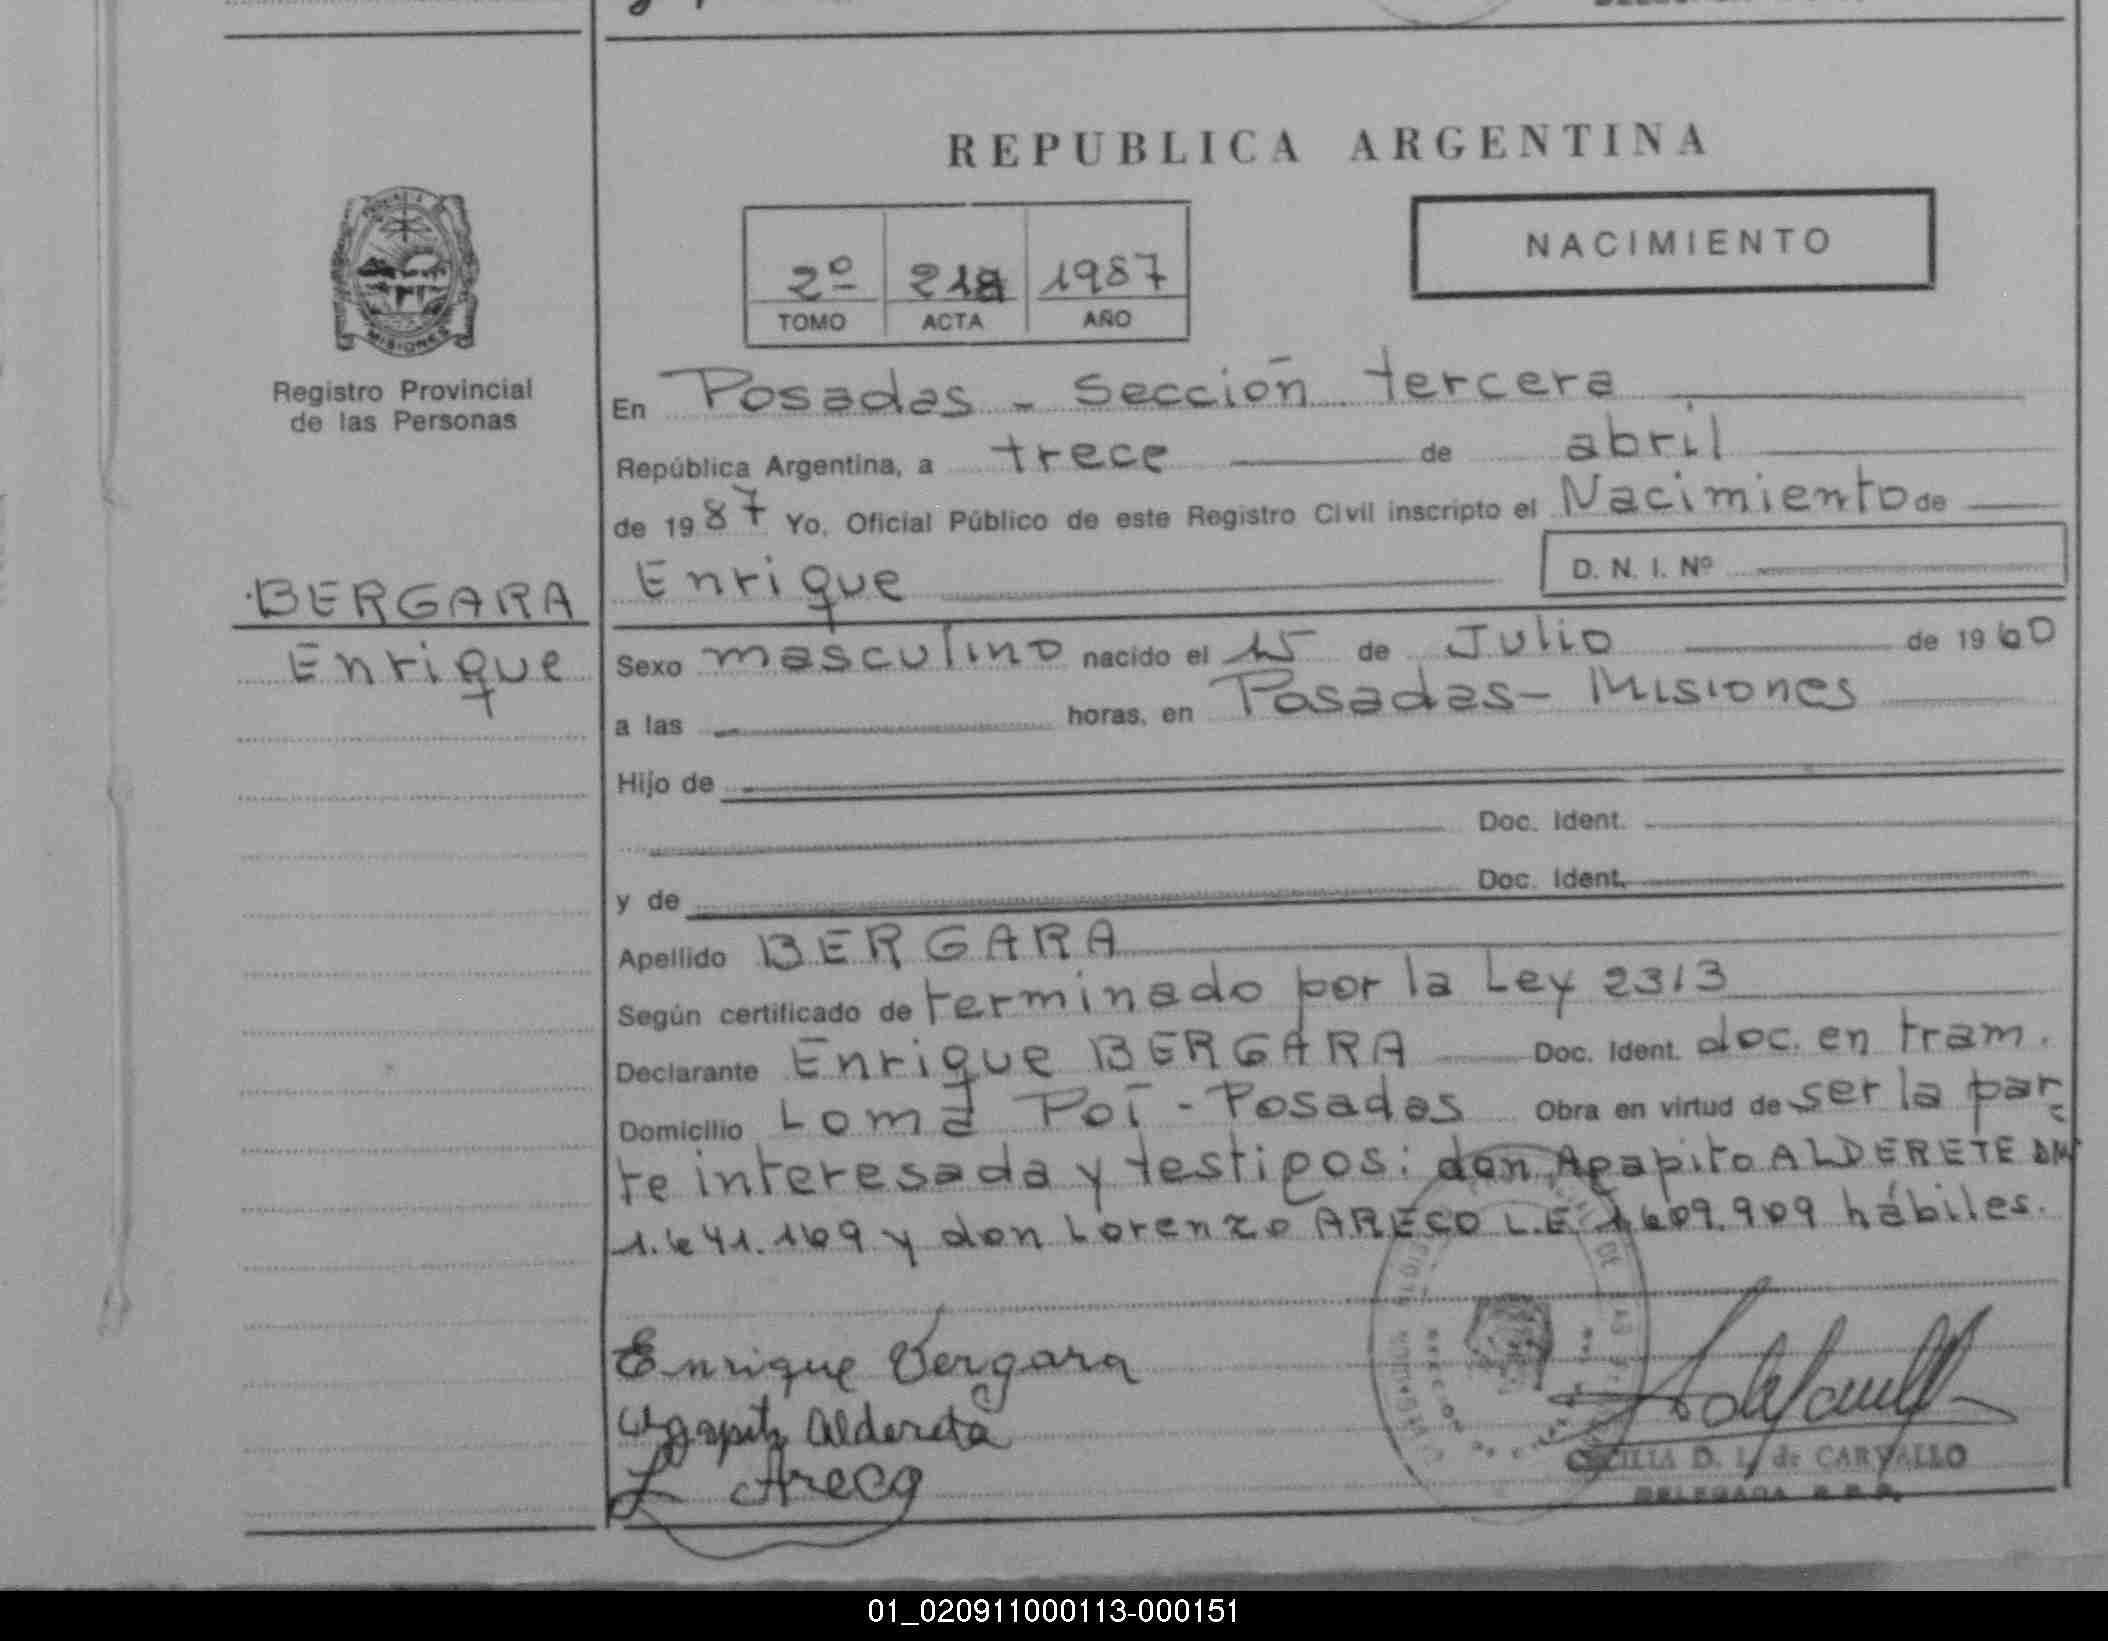 REPUBLICA ARGENTINA
NACIMIENTO
2º 1987
TOMO ACTA AÑO
MISIONES
Registro Provincial
de las Personas
BERGARA
Enrique
En Posadas - Sección tercera
República Argentina, a trece de abril
de 1987 Yo, Oficial Público de este Registro Civil inscripto el Nacimiento de
Enrique D. N. I. Nº
Sexo masculino nacido el 15 de Julio de 1960
a las horas, en Posadas - Misiones
Hijo de
Doc. Ident.
y de Doc. Ident.
Apellido BERGARA
Según certificado de terminado por la Ley 2313
Declarante Enrique BERGARA Doc. Ident. doc. en tram.
Domicilio Loma Poi - Posadas Obra en virtud de ser la par
te interesada y testigos: don Agapito ALDERETE DM
1.641.169 y don Lorenzo ARECO L.E. 1.609.909 hábiles.
Enrique Vergara
Agapito Alderete
L Areco
CECILIA D. L. de CARVALLO
DELEGADA R.P.P.
01_020911000113-000151